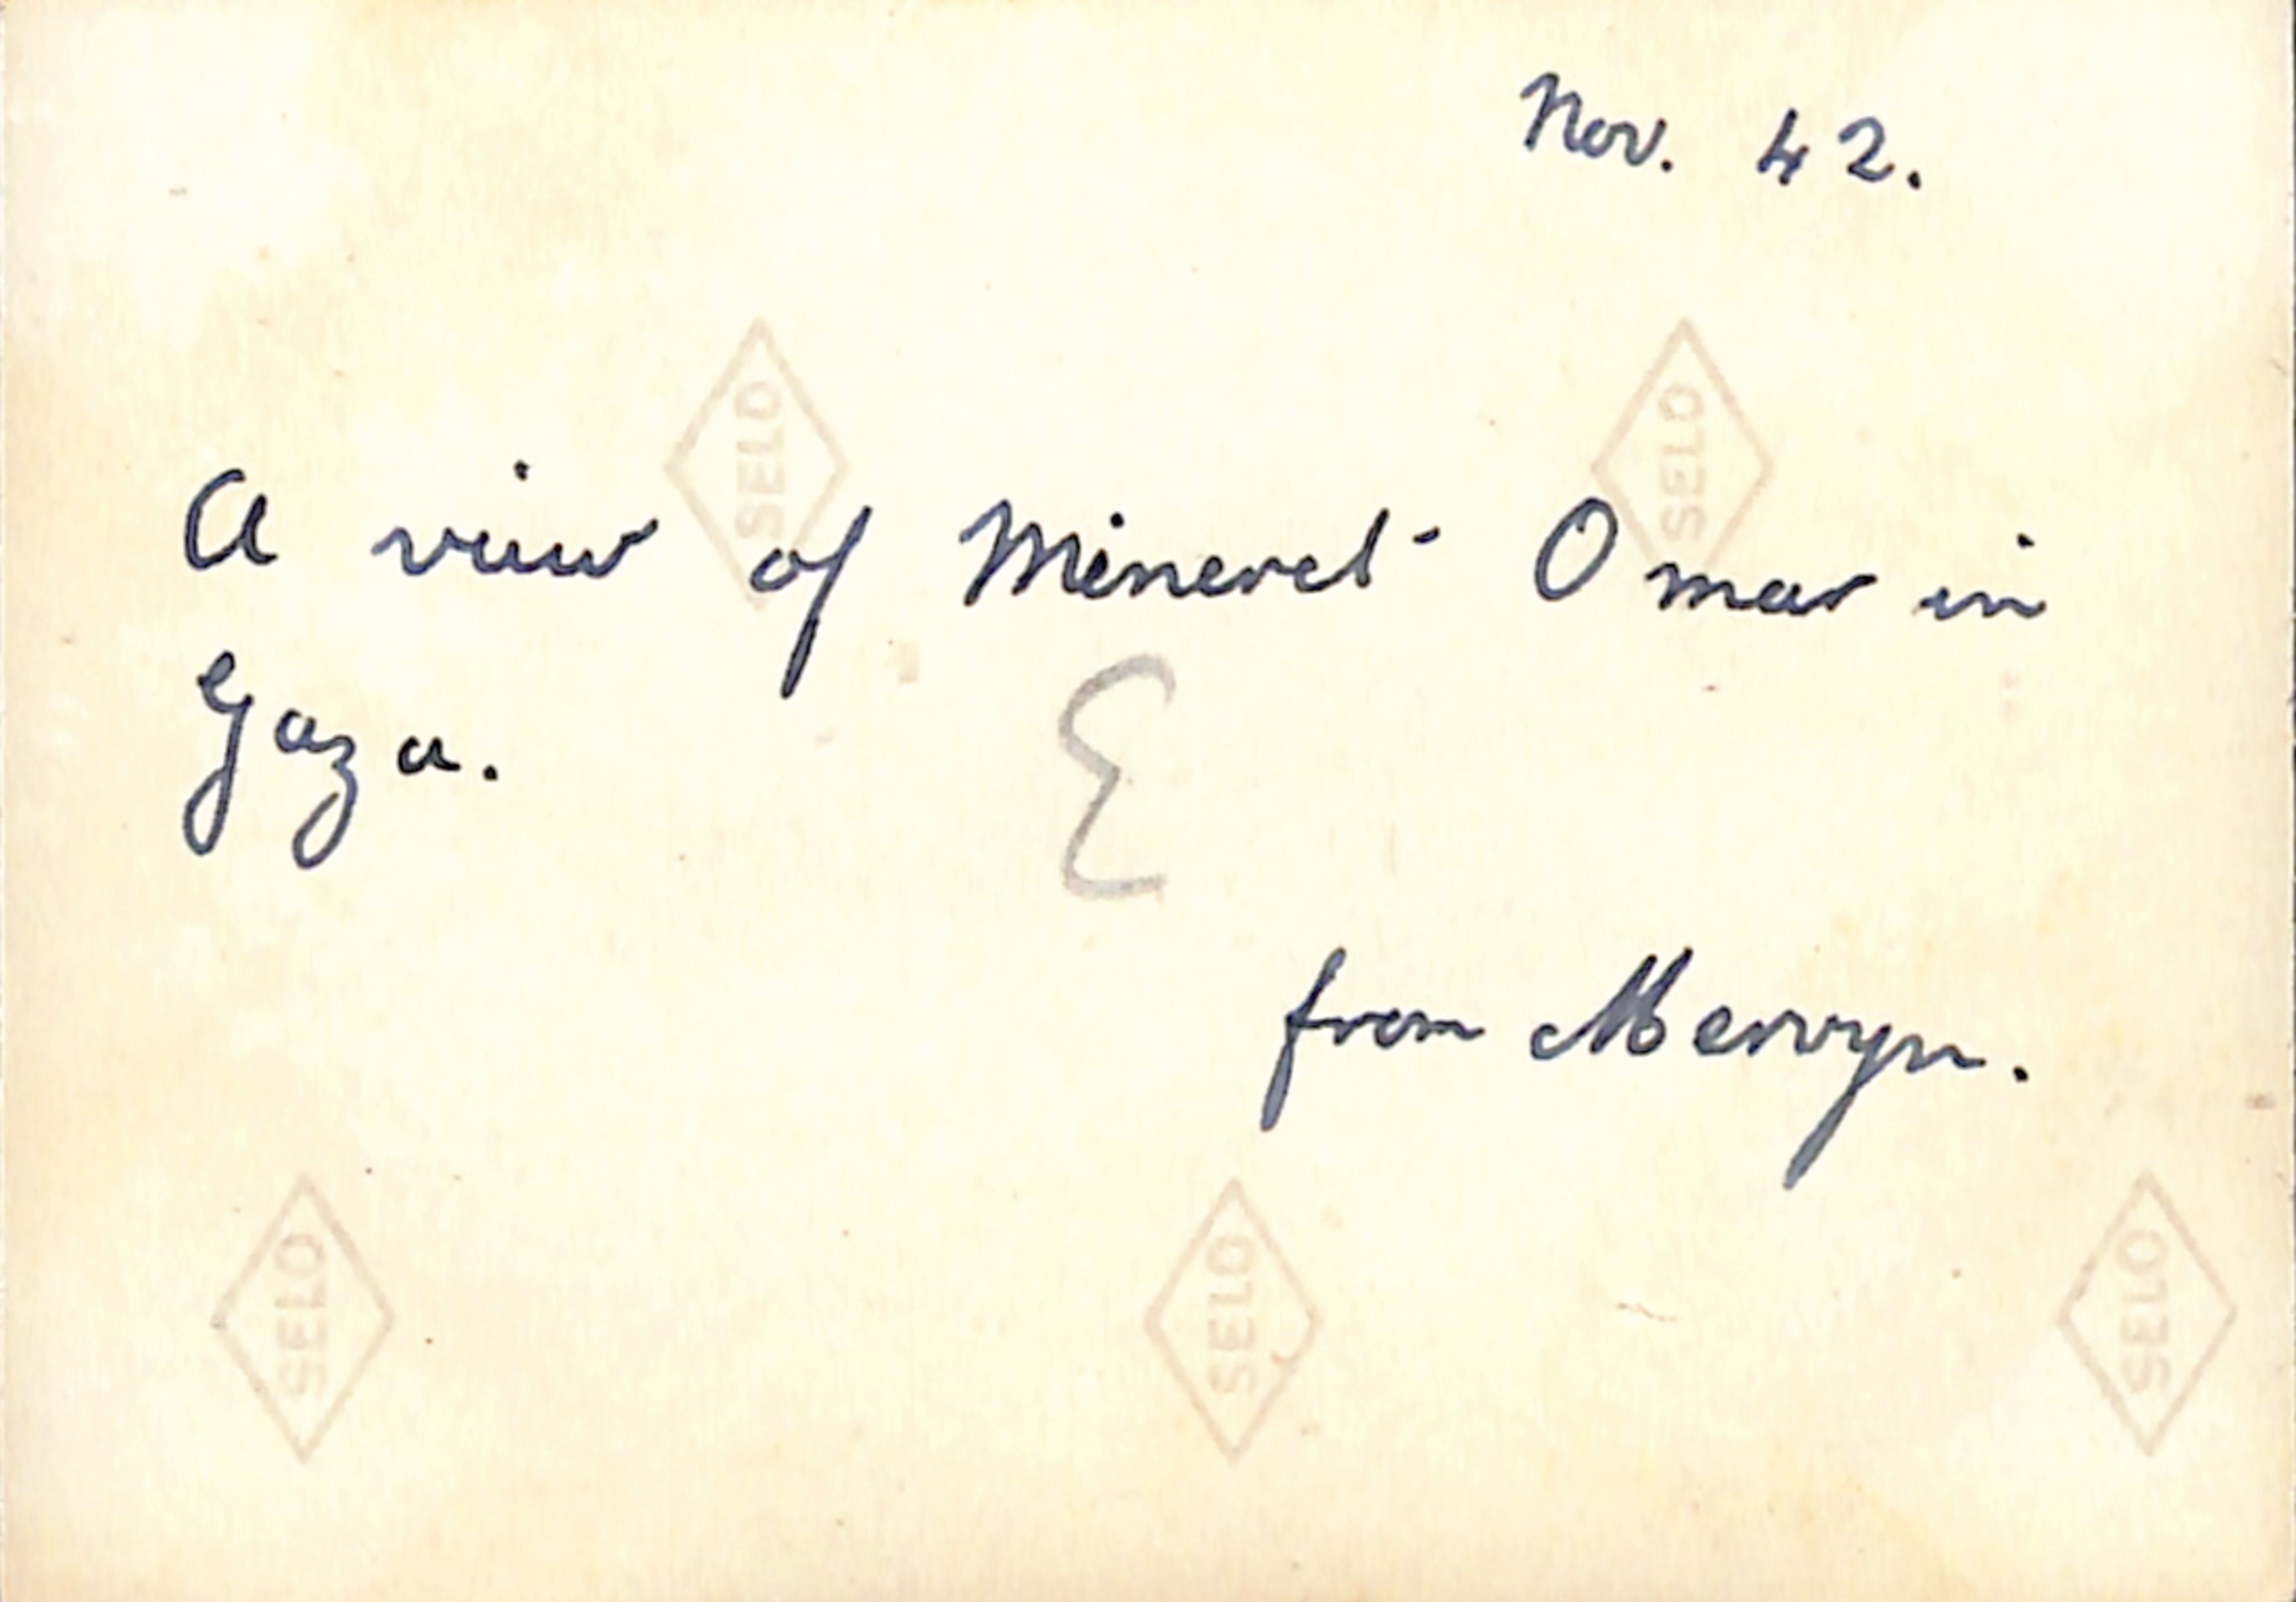 Nov. 42.
SELO
SELO
A view of Mineret Omar in
Gaza.
E
from Mervyn.
SELO
SELO
SELO